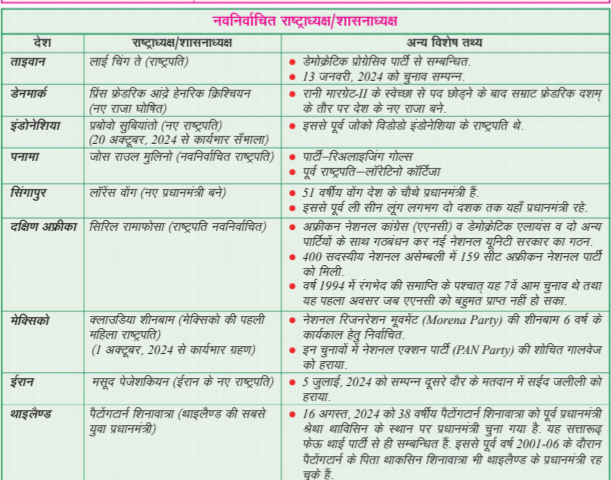 नवनिर्वाचित राष्ट्राध्यक्ष/शासनाध्यक्ष
देश
राष्ट्राध्यक्ष/शासनाध्यक्ष
अन्य विशेष तथ्य
ताइवान
लाई चिंग ते (राष्ट्रपति)
• डेमोक्रेटिक प्रोग्रेसिव पार्टी से सम्बन्धित.
• 13 जनवरी, 2024 को चुनाव सम्पन्न.
डेनमार्क
प्रिंस फ्रेडरिक आंद्रे हेनरिक क्रिश्चियन
(नए राजा घोषित)
• रानी मारग्रेट-II के स्वेच्छा से पद छोड़ने के बाद सम्राट फ्रेडरिक दशम्
के तौर पर देश के नए राजा बने.
इंडोनेशिया
प्रबोवो सुबियांतो (नए राष्ट्रपति)
(20 अक्टूबर, 2024 से कार्यभार सँभाला)
• इससे पूर्व जोको विडोडो इंडोनेशिया के राष्ट्रपति थे.
पनामा
जोस राउल मुलिनो (नवनिर्वाचित राष्ट्रपति)
• पार्टी–रिअलाइजिंग गोल्स
• पूर्व राष्ट्रपति–लॉरेटिनो कॉर्टिजा
सिंगापुर
लॉरेंस वोंग (नए प्रधानमंत्री बने)
• 51 वर्षीय वोंग देश के चौथे प्रधानमंत्री हैं.
• इससे पूर्व ली सीन लूंग लगभग दो दशक तक यहाँ प्रधानमंत्री रहे.
दक्षिण अफ्रीका
सिरिल रामाफोसा (राष्ट्रपति नवनिर्वाचित)
• अफ्रीकन नेशनल कांग्रेस (एएनसी) व डेमोक्रेटिक एलायंस व दो अन्य
पार्टियों के साथ गठबंधन कर नई नेशनल यूनिटी सरकार का गठन.
• 400 सदस्यीय नेशनल असेम्बली में 159 सीट अफ्रीकन नेशनल पार्टी
को मिली.
• वर्ष 1994 में रंगभेद की समाप्ति के पश्चात् यह 7वें आम चुनाव थे तथा
यह पहला अवसर जब एएनसी को बहुमत प्राप्त नहीं हो सका.
मेक्सिको
क्लाउडिया शीनबाम (मेक्सिको की पहली
महिला राष्ट्रपति)
(1 अक्टूबर, 2024 से कार्यभार ग्रहण)
• नेशनल रिजनरेशन मूवमेंट (Morena Party) की शीनबाम 6 वर्ष के
कार्यकाल हेतु निर्वाचित.
• इन चुनावों में नेशनल एक्शन पार्टी (PAN Party) की शोचित गालवेज
को हराया.
ईरान
मसूद पेजेशकियन (ईरान के नए राष्ट्रपति)
• 5 जुलाई, 2024 को सम्पन्न दूसरे दौर के मतदान में सईद जलीली को
हराया.
थाइलैण्ड
पैटोंगटार्न शिनावात्रा (थाइलैण्ड की सबसे
युवा प्रधानमंत्री)
• 16 अगस्त, 2024 को 38 वर्षीय पैटोंगटार्न शिनावात्रा को पूर्व प्रधानमंत्री
श्रेथा थाविसिन के स्थान पर प्रधानमंत्री चुना गया है. यह सत्तारूढ़
फेऊ थाई पार्टी से ही सम्बन्धित हैं. इससे पूर्व वर्ष 2001-06 के दौरान
पैटोंगटार्न के पिता थाकसिन शिनावात्रा भी थाइलैण्ड के प्रधानमंत्री रह
चुके हैं.